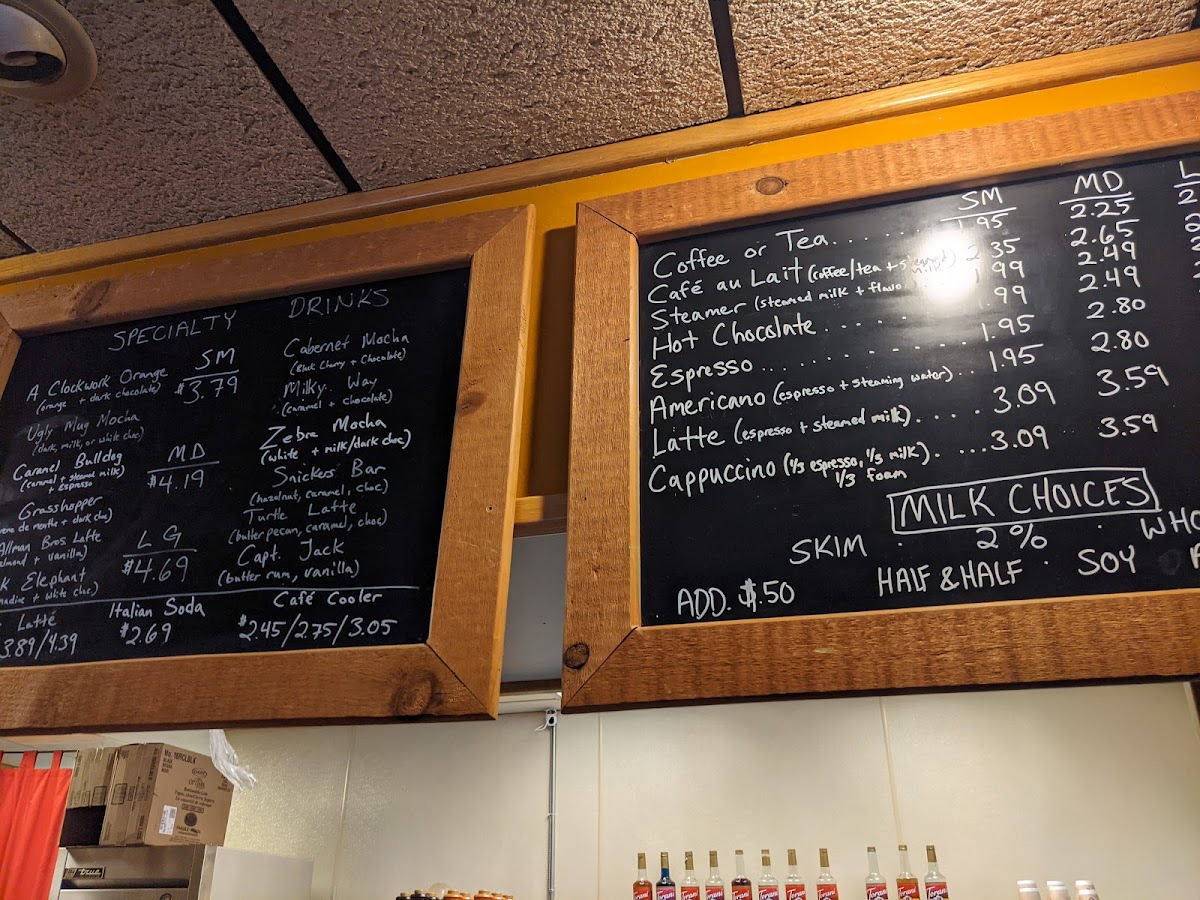 SPECIALTY DRINKS
A Clockwork Orange
(orange + dark chocolate)
Ugly Mug Mocha
(dark, milk, or white choc)
Caramel Bulldog
(caramel + steamed milk)
+ espresso
Grasshopper
de menthe + dark choc)
Allman Bros. Latte
+ vanilla)
Elephant
+ white choc)
SM
$3.79
MD
$4.19
LG
$4.69
Cabernet Mocha
(Black Cherry + Chocolate)
Milky Way
(caramel + chocolate)
Zebra Mocha
(white + milk/dark choc)
Snickers Bar
(hazelnut, caramel, choc)
Turtle Latte
(butter pecan, caramel, choc)
Capt. Jack
(butter rum, vanilla)
Latté
3.89/4.39
Italian Soda
$2.69
Café Cooler
$2.45/2.75/3.05
SM MD L
Coffee or Tea..... 1.95 2.25
Café au Lait (coffee/tea + steamed milk) 2.35 2.65
Steamer (steamed milk + 1.99 2.49
Hot Chocolate.... 1.99 2.49
Espresso......... 1.95 2.80
Americano (espresso + steaming water).. 1.95 2.80
Latte (espresso + steamed milk)..... 3.09 3.59
Cappuccino (1/3 espresso, 1/3 milk). ....3.09 3.59
1/3 foam
MILK CHOICES
SKIM · 2% · WHO
ADD. $.50 HALF & HALF · SOY
true
Torani
Torani
Torani
Torani
Torani
Torani
Torani
Torani
Torani
Torani